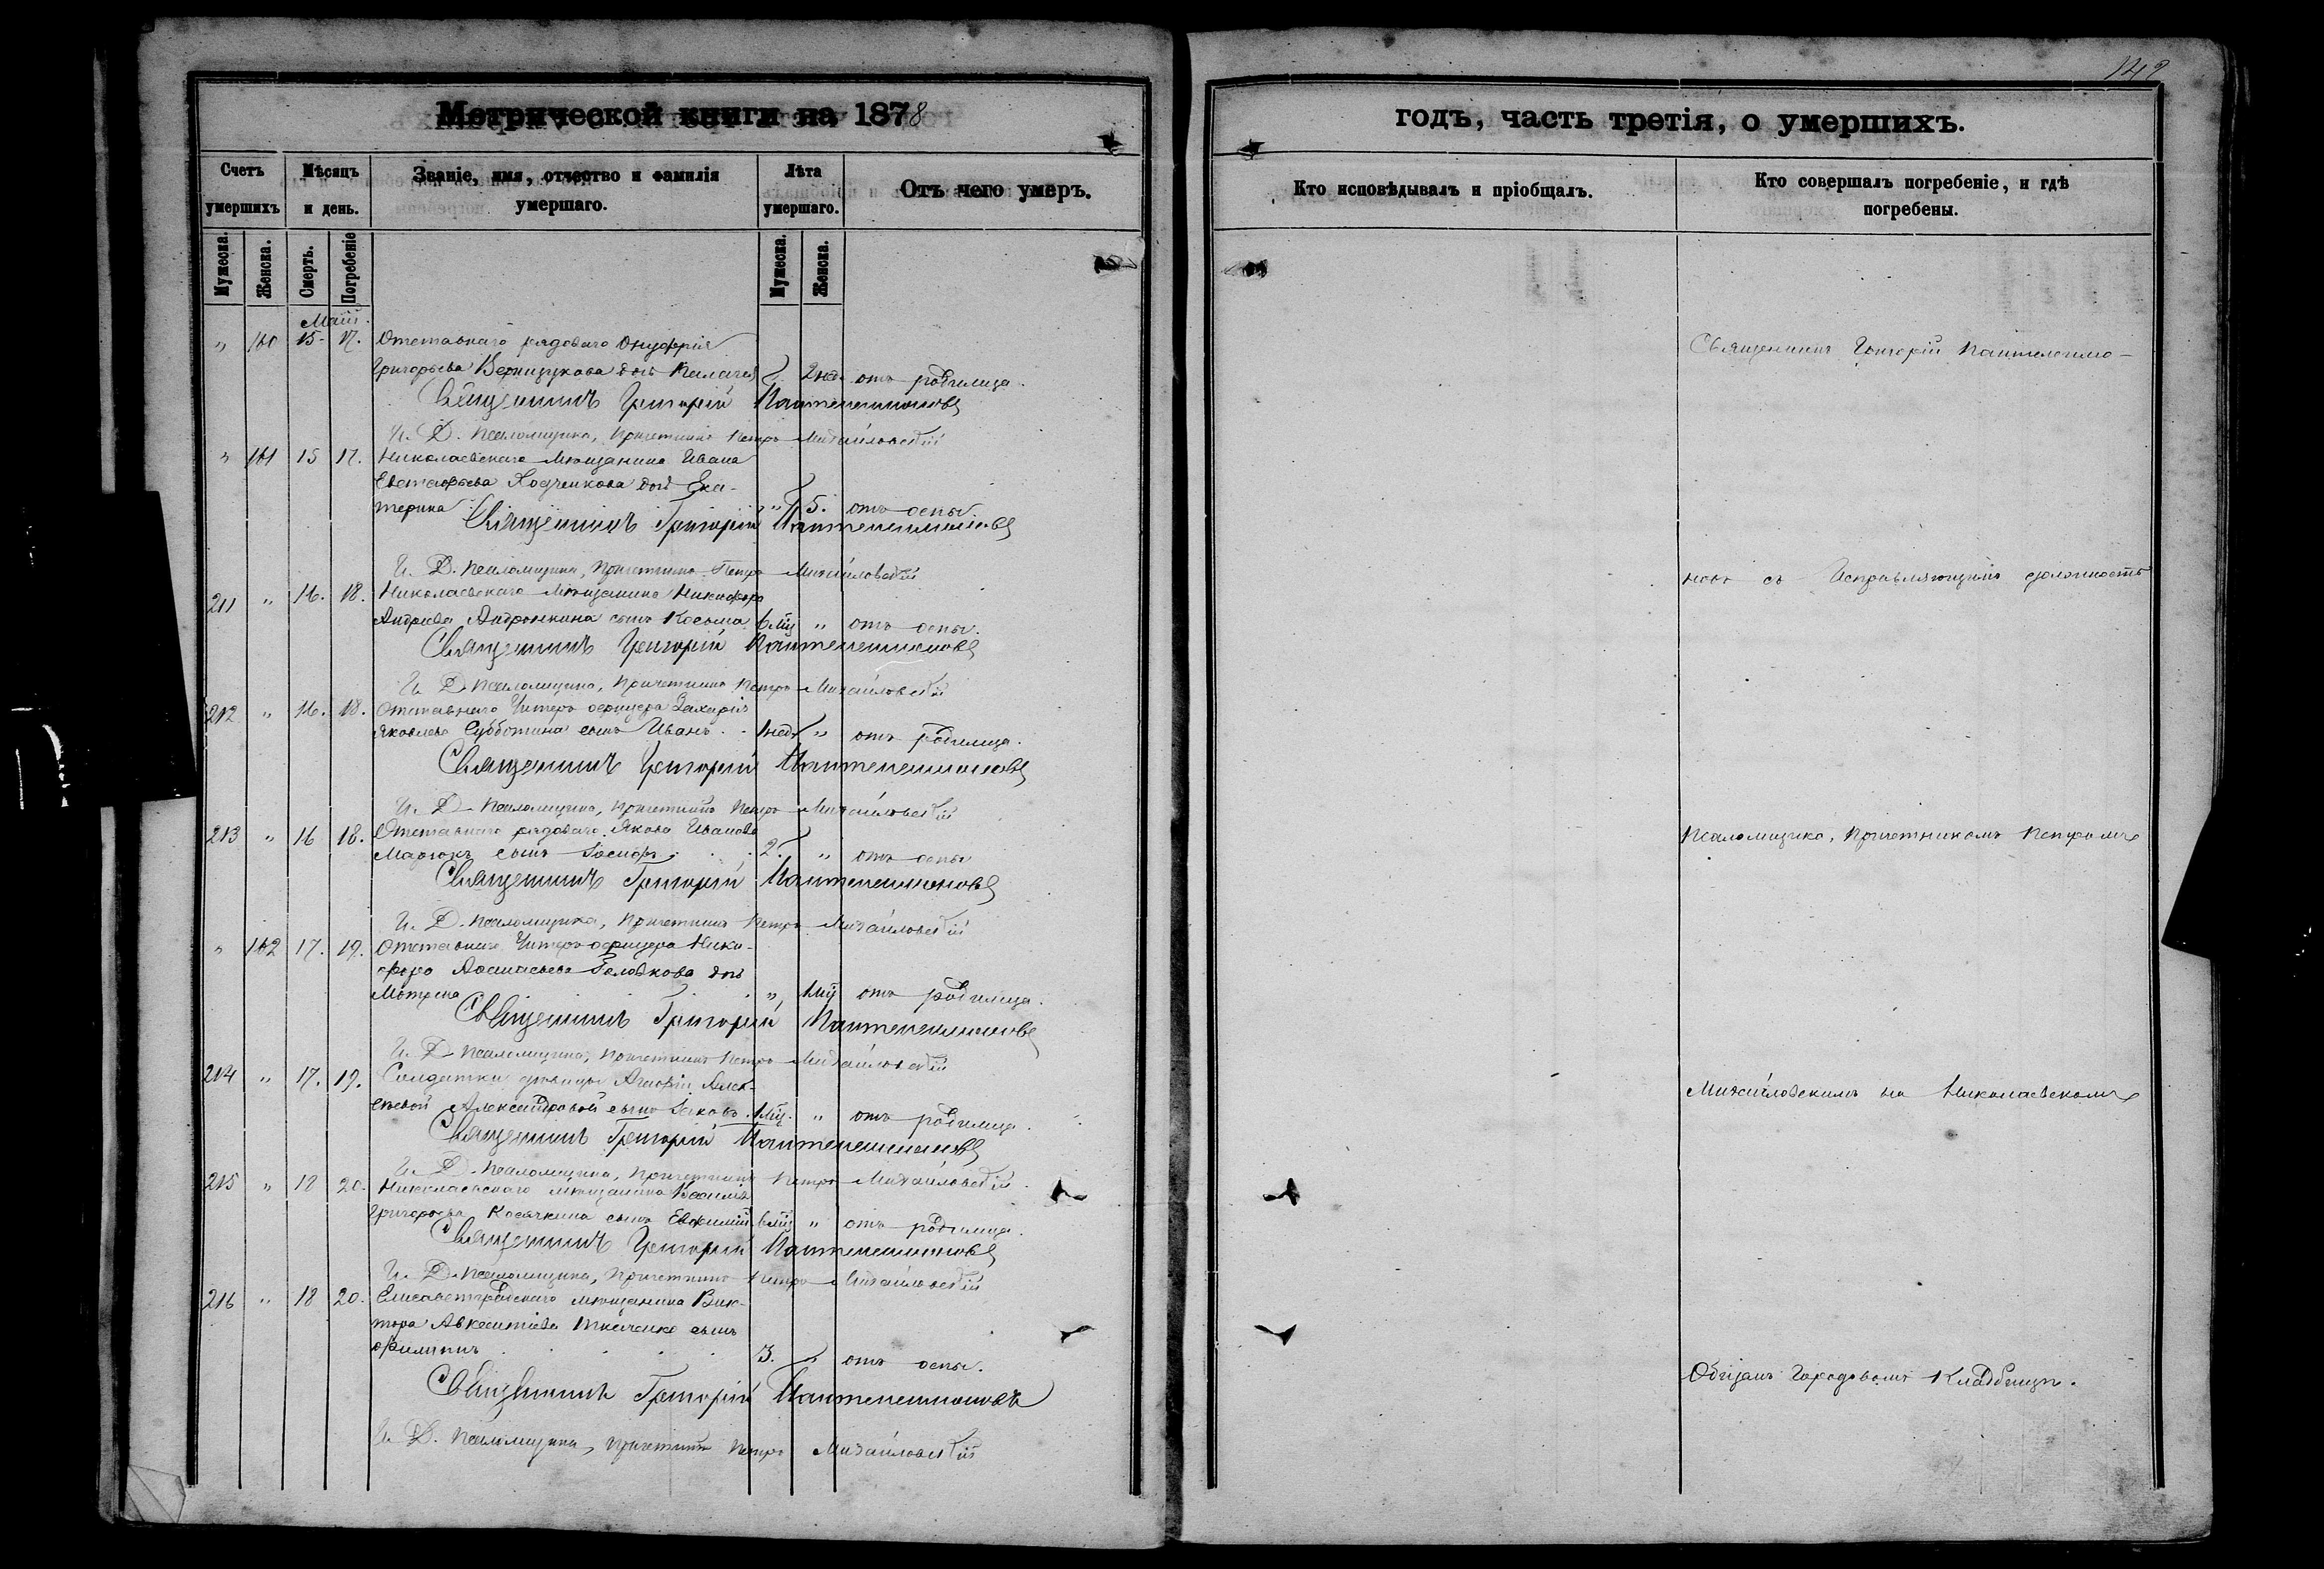 142
Метрической книги на 1878
годъ, часть третія, о умершихъ.
Счетъ умершихъ
Мѣсяцъ и день.
Званіе, имя, отчество и фамилія умершаго.
Лѣта умершаго.
Отъ чего умеръ.
Кто исповѣдывалъ и пріобщалъ.
Кто совершалъ погребеніе, и гдѣ погребены.
Мужеска. Женска. Смерть. Погребеніе Мужеска. Женска.
Маій.
" 160 15. 17. Отставнаго рядоваго Онуфрія
Григорьева дочь Пелагея 2 нед. отъ родимца.
Священникъ Григорій Пантелеимоновъ
И. Д. Псаломщика, Причетникъ Петръ Михайловскій
" 161 15 17. Николаевскаго мѣщанина Ивана
Евстафьева дочь Ека-
терина " 5. отъ оспы.
Священникъ Григорій Пантелеимоновъ
И. Д. Псаломщика, Причетникъ Петръ Михайловскій
211 " 16. 18. Николаевскаго мѣщанина Никифора
Андреева Андрюнкина сынъ Косьма 6 мц " отъ оспы.
Священникъ Григорій Пантелеимоновъ
И. Д. Псаломщика, Причетникъ Петръ Михайловскій
212 " 16. 18. Отставнаго Унтеръ офицера Захарія
Яковлева Субботина сынъ Иванъ. 1 нед. " отъ родимца.
Священникъ Григорій Пантелеимоновъ
И. Д. Псаломщика, Причетникъ Петръ Михайловскій
213 " 16 18. Отставнаго рядоваго Якова Иванова
сынъ Іосифъ 2. " отъ оспы
Священникъ Григорій Пантелеимоновъ
И. Д. Псаломщика, Причетникъ Петръ Михайловскій
" 162 17. 19. Отставнаго Унтеръ-офицера Ники-
фора Аѳанасьева Головкова дочь
Мотрона ", 1 мц отъ родимца.
Священникъ Григорій Пантелеимоновъ
И. Д. Псаломщика, Причетникъ Петръ Михайловскій
214 " 17. 19. Солдатки Алек-
сѣевой Александровой сынъ Іаковъ. 1 мц. " отъ родимца.
Священникъ Григорій Пантелеимоновъ
И. Д. Псаломщика, Причетникъ Петръ Михайловскій
215 " 18 20. Николаевскаго мѣщанина Василія
Григорьева Косячкина сынъ Евфимій 6 мц " отъ родимца.
Священникъ Григорій Пантелеимоновъ
И. Д. Псаломщика, Причетникъ Петръ Михайловскій
216 " 18 20. Елисаветградскаго мѣщанина Вик-
тора Авксентіева Ткаченко сынъ
Филиппъ 3. " отъ оспы.
Священникъ Григорій Пантелеимоновъ
И. Д. Псаломщика, Причетникъ Петръ Михайловскій
Священникъ Григорій Пантелеимо-
новъ съ Исправляющимъ должность
Псаломщика, Причетникомъ Петромъ
Михайловскимъ на Николаевскомъ
Общемъ Городовомъ Кладбищѣ.